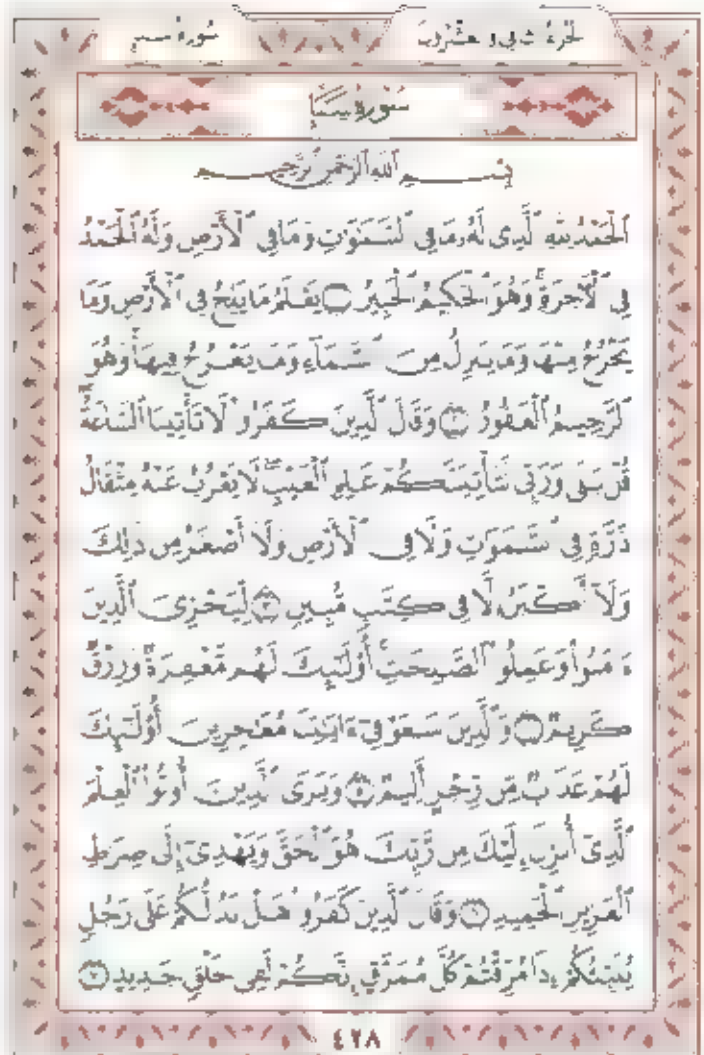 الجزء الثاني والعشرون
سورة سبإ
سُورَةُ سَبَإٍ
بِسْمِ ٱللَّهِ ٱلرَّحْمَٰنِ ٱلرَّحِيمِ
ٱلْحَمْدُ لِلَّهِ ٱلَّذِى لَهُۥ مَا فِى ٱلسَّمَٰوَٰتِ وَمَا فِى ٱلْأَرْضِ وَلَهُ ٱلْحَمْدُ
فِى ٱلْأَخِرَةِۚ وَهُوَ ٱلْحَكِيمُ ٱلْخَبِيرُ ١ يَعْلَمُ مَا يَلِجُ فِى ٱلْأَرْضِ وَمَا
يَخْرُجُ مِنْهَا وَمَا يَنزِلُ مِنَ ٱلسَّمَآءِ وَمَا يَعْرُجُ فِيهَاۚ وَهُوَ
ٱلرَّحِيمُ ٱلْغَفُورُ ٢ وَقَالَ ٱلَّذِينَ كَفَرُوا۟ لَا تَأْتِينَا ٱلسَّاعَةُۖ
قُلْ بَلَىٰ وَرَبِّى لَتَأْتِيَنَّكُمْ عَٰلِمِ ٱلْغَيْبِۖ لَا يَعْزُبُ عَنْهُ مِثْقَالُ
ذَرَّةٍ فِى ٱلسَّمَٰوَٰتِ وَلَا فِى ٱلْأَرْضِ وَلَآ أَصْغَرُ مِن ذَٰلِكَ
وَلَآ أَكْبَرُ إِلَّا فِى كِتَٰبٍ مُّبِينٍ ٣ لِّيَجْزِىَ ٱلَّذِينَ
ءَامَنُوا۟ وَعَمِلُوا۟ ٱلصَّٰلِحَٰتِۚ أُو۟لَٰٓئِكَ لَهُم مَّغْفِرَةٌ وَرِزْقٌ
كَرِيمٌ ٤ وَٱلَّذِينَ سَعَوْ فِىٓ ءَايَٰتِنَا مُعَٰجِزِينَ أُو۟لَٰٓئِكَ
لَهُمْ عَذَابٌ مِّن رِّجْزٍ أَلِيمٌ ٥ وَيَرَى ٱلَّذِينَ أُوتُوا۟ ٱلْعِلْمَ
ٱلَّذِىٓ أُنزِلَ إِلَيْكَ مِن رَّبِّكَ هُوَ ٱلْحَقَّ وَيَهْدِىٓ إِلَىٰ صِرَٰطِ
ٱلْعَزِيزِ ٱلْحَمِيدِ ٦ وَقَالَ ٱلَّذِينَ كَفَرُوا۟ هَلْ نَدُلُّكُمْ عَلَىٰ رَجُلٍ
يُنَبِّئُكُمْ إِذَا مُزِّقْتُمْ كُلَّ مُمَزَّقٍ إِنَّكُمْ لَفِى خَلْقٍ جَدِيدٍ ٧
٤٢٨